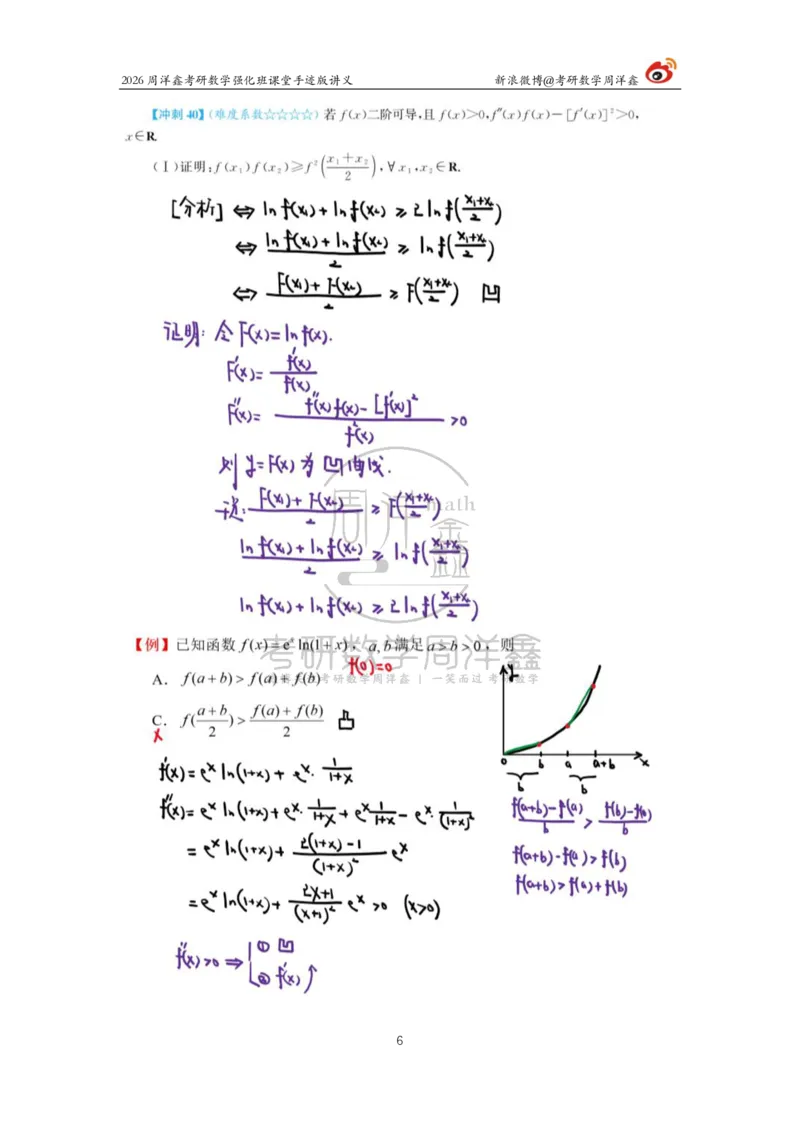 2026 周洋鑫考研数学强化班课堂手迹版讲义 新浪微博@考研数学周洋鑫
【冲刺 40】(难度系数☆☆☆☆) 若 f(x)二阶可导,且 f(x)>0,f″(x)f(x)-[f′(x)]²>0,
x∈R.
(Ⅰ)证明:f(x₁)f(x₂)≥f²((x₁+x₂)/2),∀x₁,x₂∈R.
[分析] ⇔ ln f(x₁)+ln f(x₂) ≥ 2 ln f((x₁+x₂)/2)
⇔ (ln f(x₁)+ln f(x₂))/2 ≥ ln f((x₁+x₂)/2)
⇔ (F(x₁)+F(x₂))/2 ≥ F((x₁+x₂)/2) 凹
证明: 令 F(x)=ln f(x).
F′(x)= f′(x)/f(x)
F″(x)= (f″(x)f(x)-[f′(x)]²)/f²(x) >0
则 y=F(x) 为凹曲线.
(F(x₁)+F(x₂))/2 ≥ F((x₁+x₂)/2)
(ln f(x₁)+ln f(x₂))/2 ≥ ln f((x₁+x₂)/2)
ln f(x₁)+ln f(x₂) ≥ 2 ln f((x₁+x₂)/2)
周洋鑫 math
考研数学周洋鑫
考研数学周洋鑫 | 一笑而过 考研数学
【例】已知函数 f(x)=eˣ ln(1+x), a,b满足 a>b>0, 则
f(0)=0
A. f(a+b)>f(a)+f(b)
C. f((a+b)/2)>(f(a)+f(b))/2 凸
x
f′(x)=eˣ ln(1+x)+eˣ·1/(1+x)
f″(x)=eˣ ln(1+x)+eˣ·1/(1+x)+eˣ 1/(1+x)-eˣ·1/(1+x)²
=eˣ ln(1+x)+(2(1+x)-1)/(1+x)² eˣ
=eˣ ln(1+x)+(2x+1)/(x+1)² eˣ>0 (x>0)
f″(x)>0 ⇒ ① 凹
② f′(x)↑
y
0 b a a+b x
b b
(f(a+b)-f(a))/b > (f(b)-f(0))/b
f(a+b)-f(a)>f(b)
f(a+b)>f(a)+f(b)
6